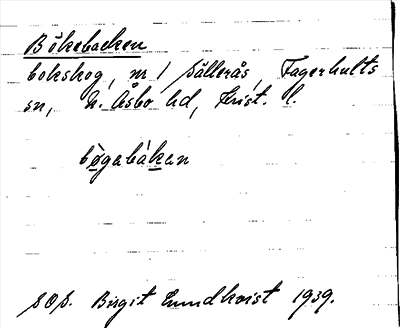 Bökebacken
bokskog, m / Sällerås, Fagerhults
sn, N. Åsbo hd, Krist. l.
bøgabákan
SOS. Birgit Lundkvist 1939.